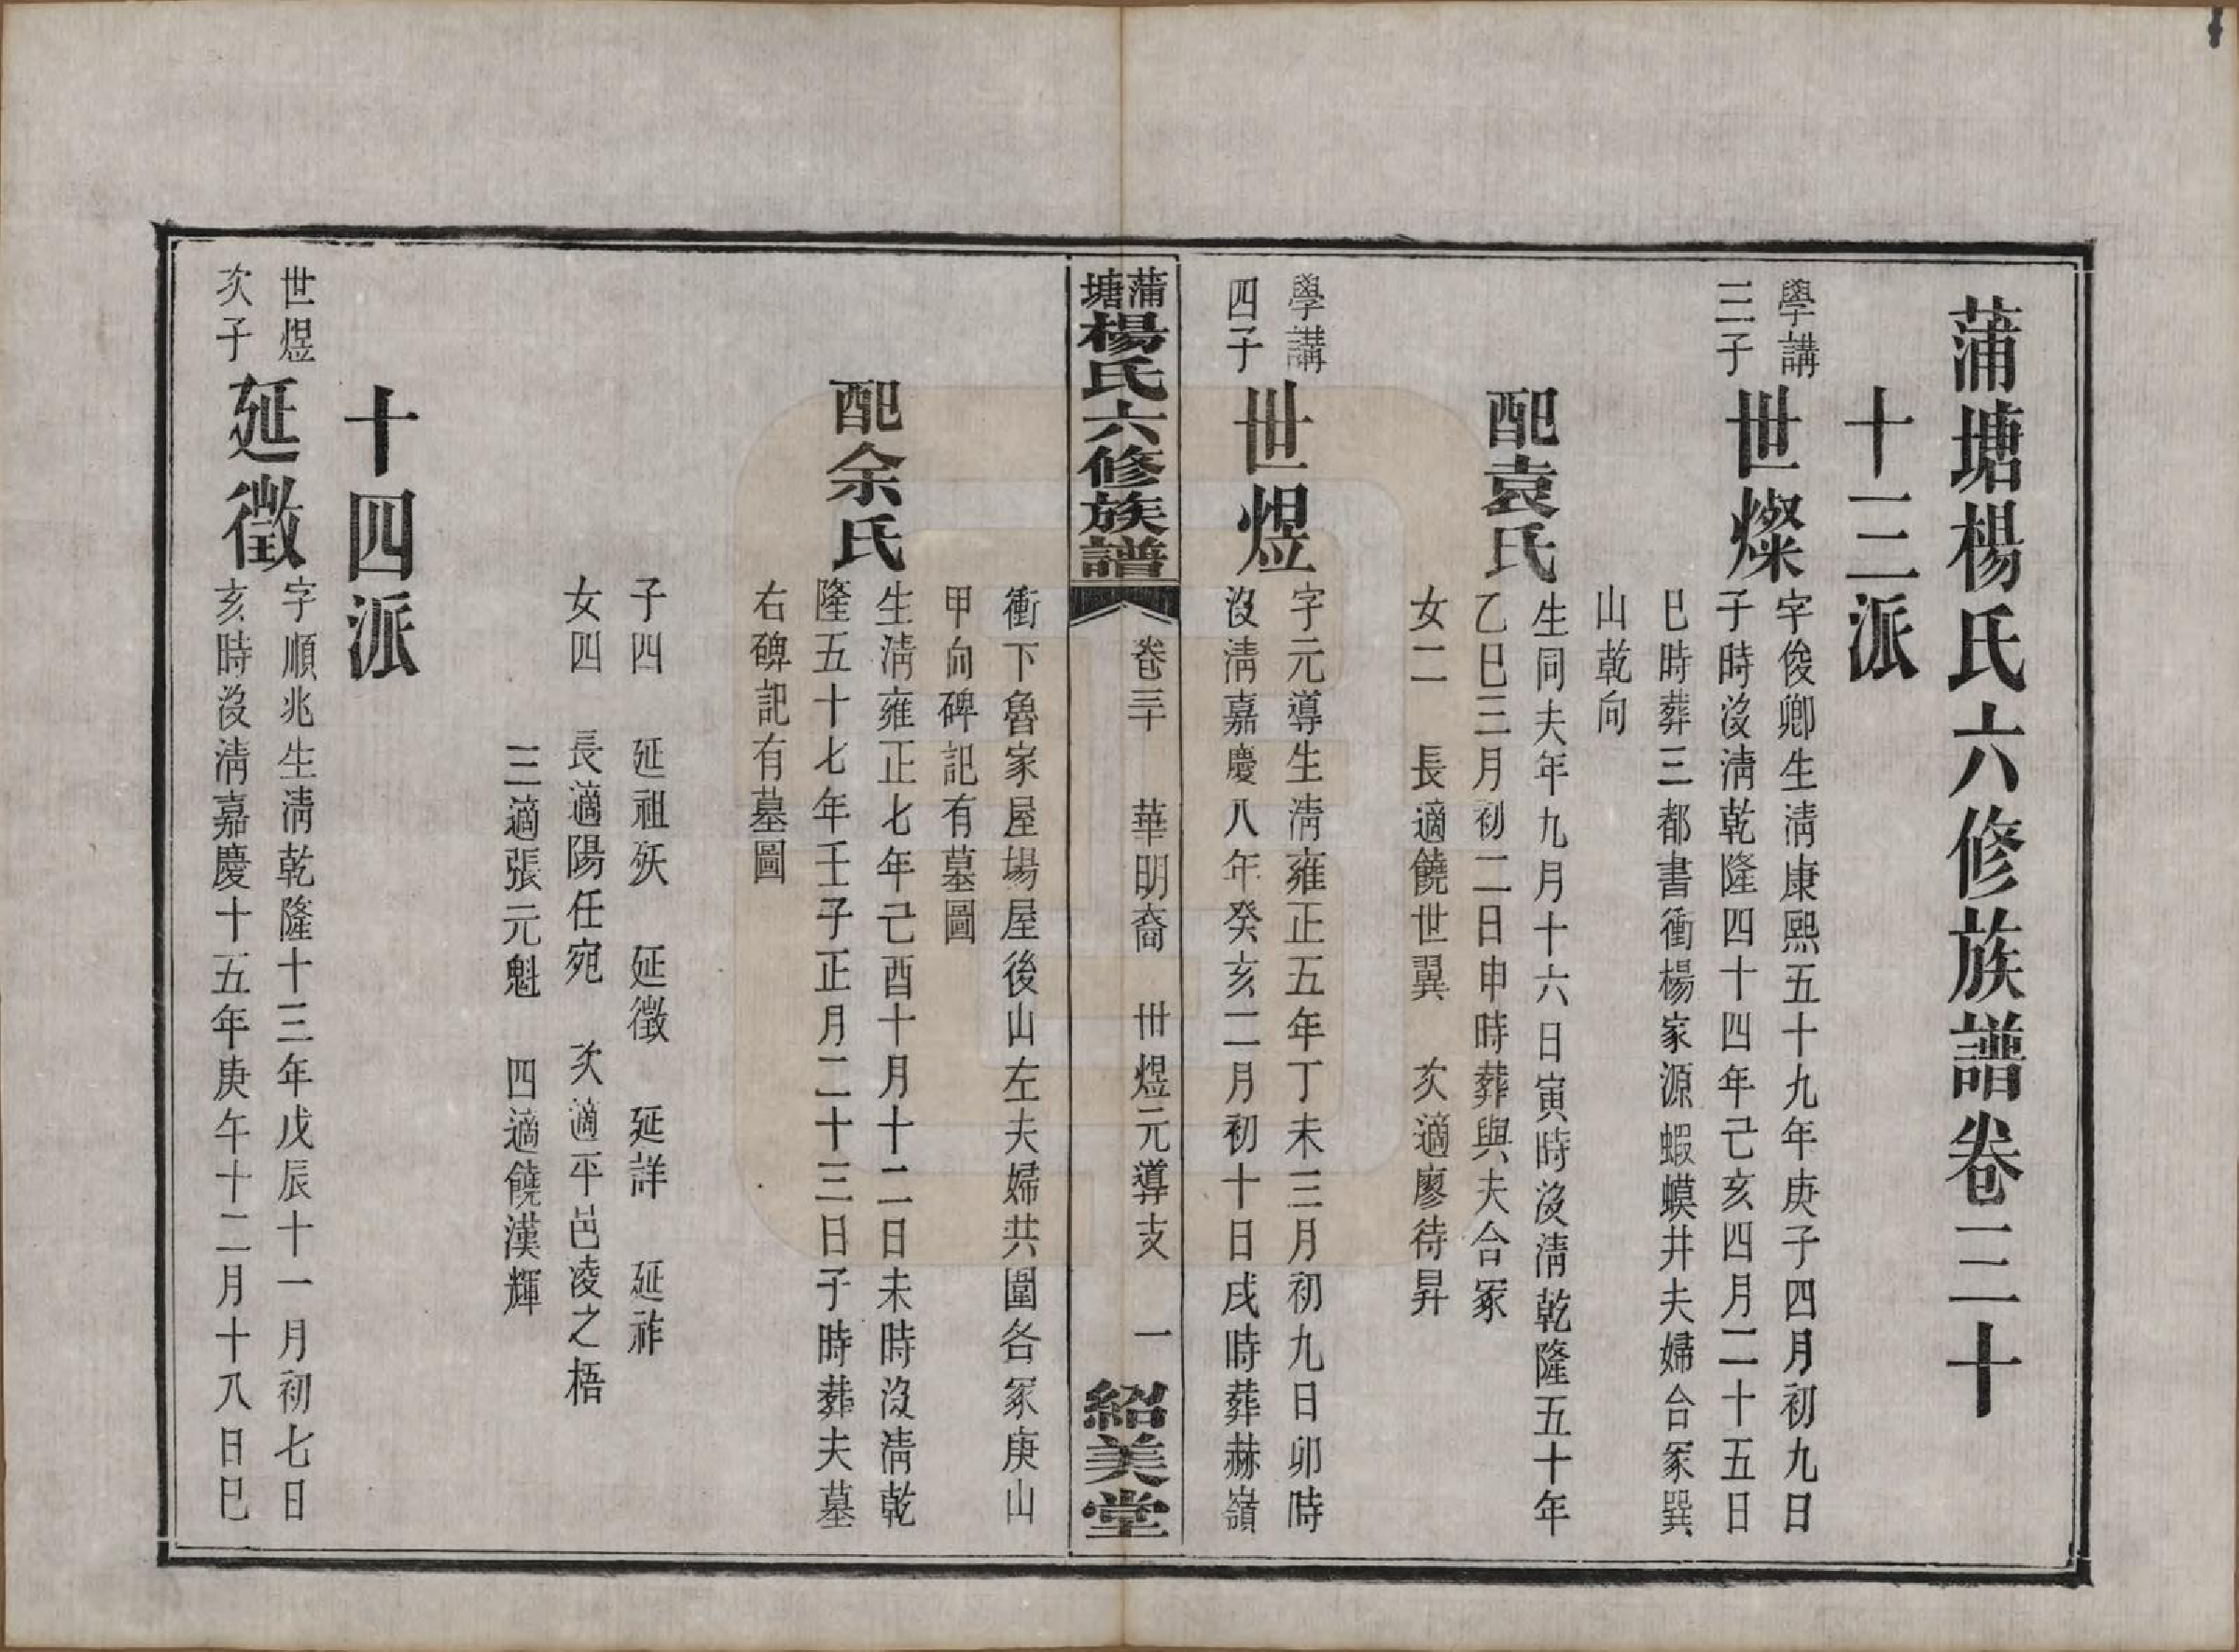 蒲塘楊氏六修族譜卷三十
十三派
學講
三子
世燦
字俊卿生淸康熙五十九年庚子四月初九日
子時沒淸乾隆四十四年己亥四月二十五日
巳時葬三都書衝楊家源蝦蟆井夫婦合冢巽
山乾向
配袁氏
生同夫年九月十六日寅時沒淸乾隆五十年
乙巳三月初二日申時葬與夫合冢
女二　長適饒世翼　次適廖待昇
學講
四子
世煜
字元導生淸雍正五年丁未三月初九日卯時
沒淸嘉慶八年癸亥二月初十日戌時葬赫嶺
蒲塘楊氏六修族譜　卷三十　華明裔　世煜元導支　一　紹美堂
衝下魯家屋場屋後山左夫婦共圍各冢庚山
甲向碑記有墓圖
配余氏
生淸雍正七年己酉十月十二日未時沒淸乾
隆五十七年壬子正月二十三日子時葬夫墓
右碑記有墓圖
子四　延祖殀　延徵　延詳　延祚
女四　長適陽任宛　次適平邑凌之梧
三適張元魁　四適饒漢輝
十四派
世煜
次子
延徵
字順兆生淸乾隆十三年戊辰十一月初七日
亥時沒淸嘉慶十五年庚午十二月十八日巳